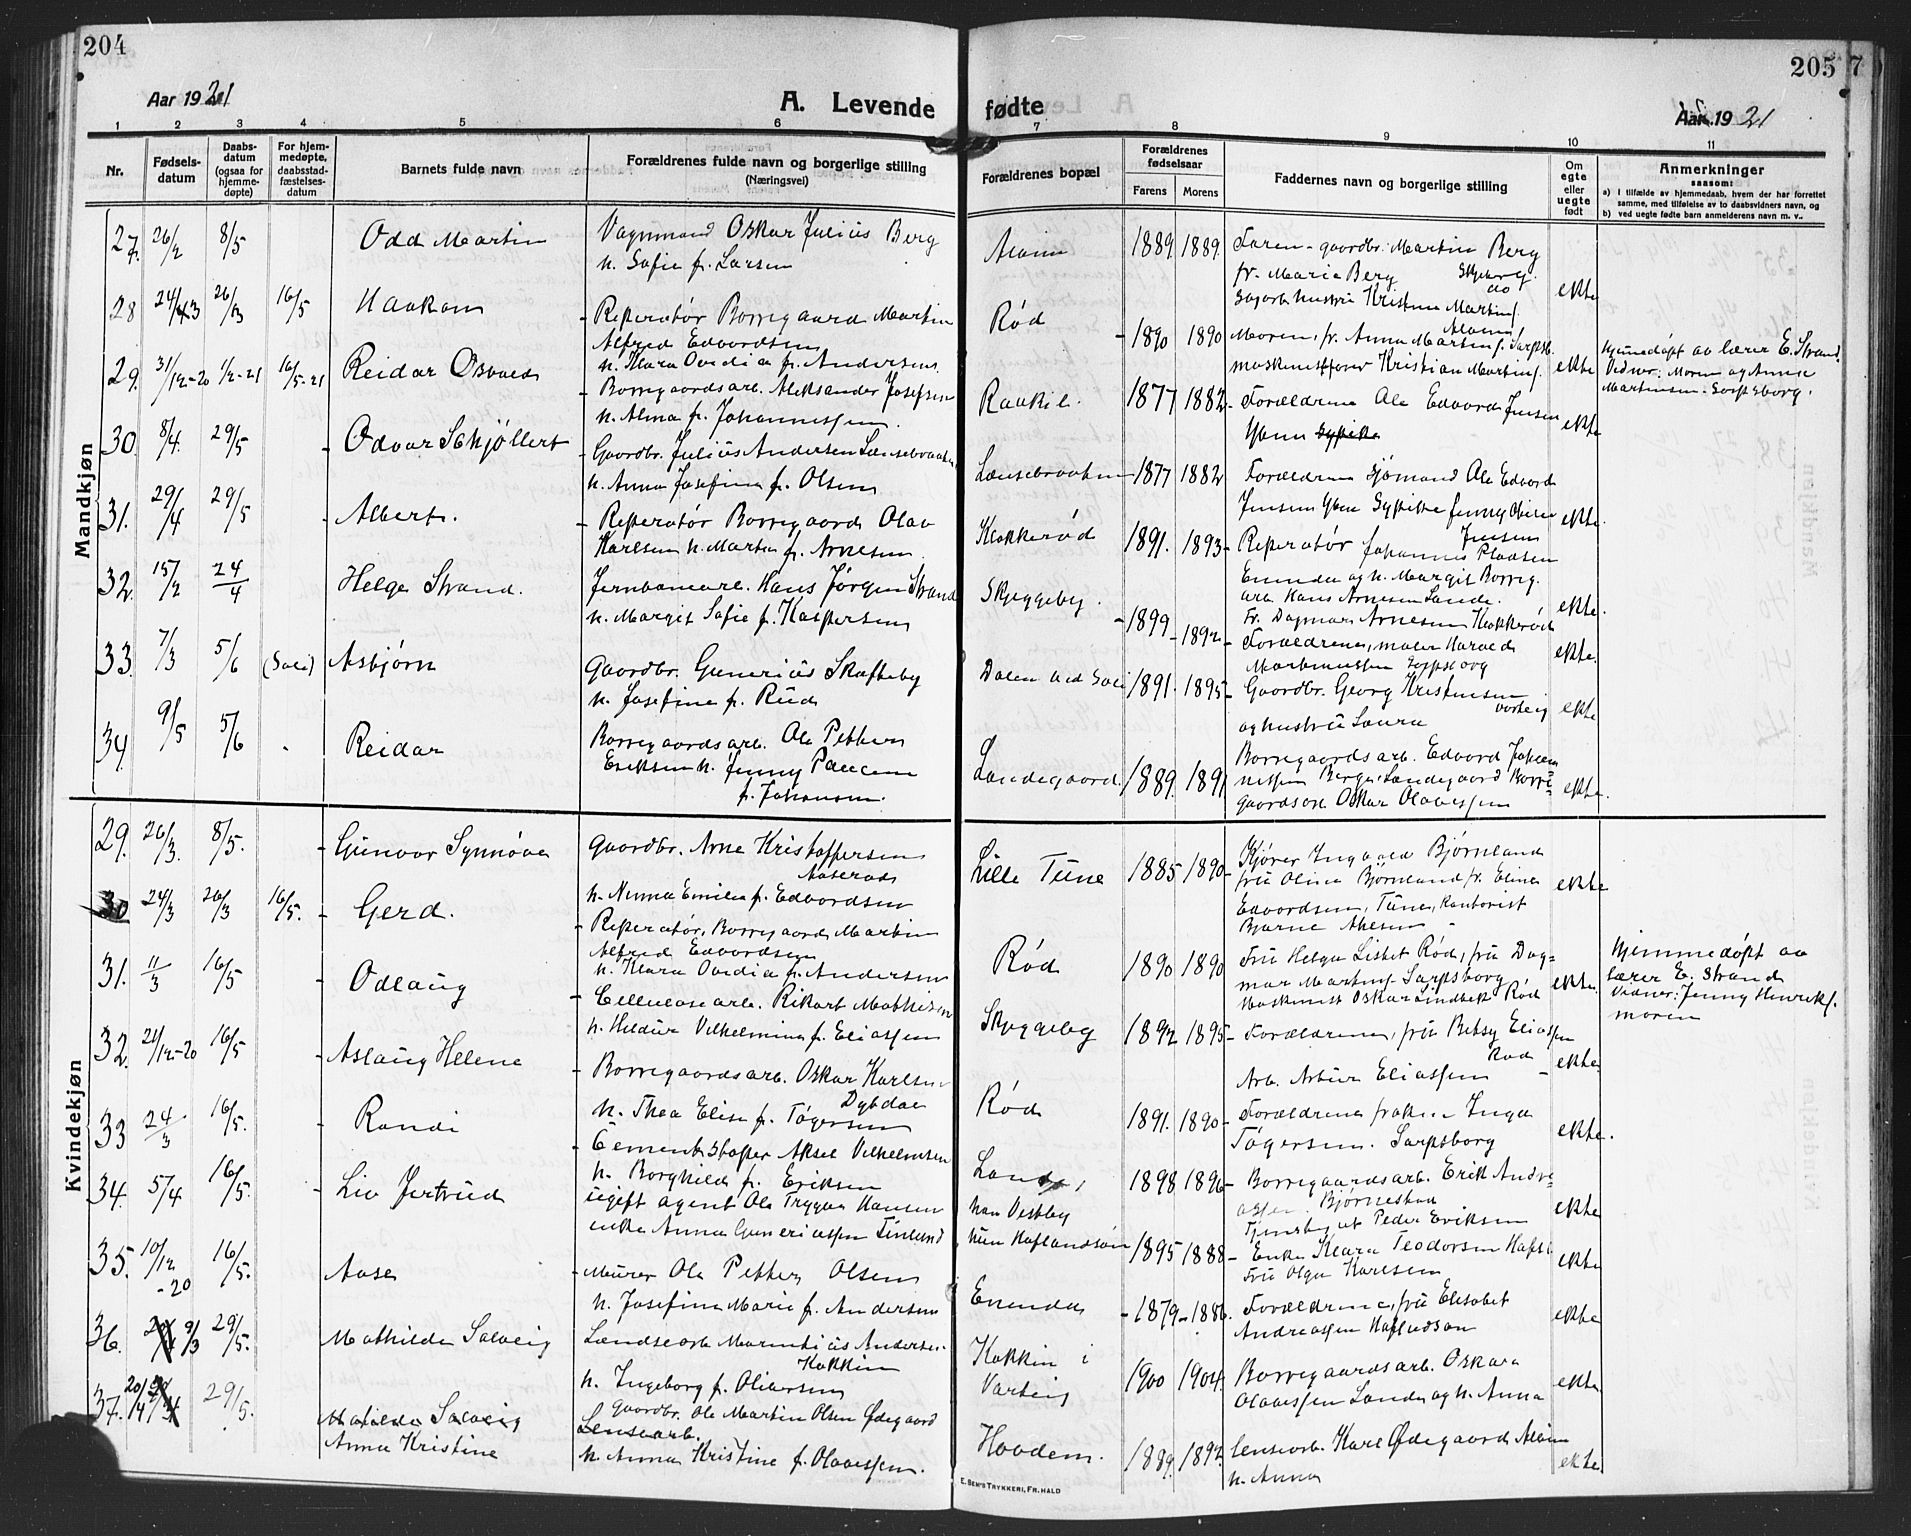 204
Aar 1921
A. Levende
1 2 3 4 5 6
Nr.
Fødsels-
datum
Daabs-
datum
(ogsaa for
hjemme-
døpte)
For hjem-
medøpte,
daabsstad-
fæstelses-
datum
Barnets fulde navn
Forældrenes fulde navn og borgerlige stilling
(Næringsvei)
Mandkjøn
27. 26/2 8/5 Odd Martin Vognmand Oskar Julius Berg
h. Sofie f. Larsen
28 24/3 26/3 16/5 Haakon Reperatør Borregaard Martin
Alfred Edvardsen
h. Klara Ovidia f. Andersen
29. 31/12-20 1/2-21 16/5-21 Reidar Osvald Borregaardsarb. Aleksander Josefsen
h. Alma f. Johannessen.
30. 8/4. 29/5 Odvar Schjøllert Gaardbr. Julius Andersen Lensebraaten
h. Anna Josefine f. Olsen
31. 29/4 29/5 Albert. Reperatør Borregaard Olav
Karlsen h. Marta f. Arnesen
32. 15/2 24/4 Helge Strand. Jernbanearb. Hans Jørgen Strand
h. Margit Sofie f. Kaspersen
33. 7/3 5/6 (Soli) Asbjørn Gaardbr. Gunerius Skofteby
h. Josefine f. Rud
34. 9/5 5/6 Reidar Borregaardsarb. Ole Petter
Eriksen h. Jenny Pauline
f. Johansen.
Kvindekjøn
29. 26/3. 8/5. Gunvor Synnøve Gaardbr. Arne Kristoffersen
Aaserød
h. Numa Emilie f. Edvardsen
30 24/3 26/3 16/5. Gerd. Reperatør, Borregaard Martin
Alfred Edvardsen
h. Klara Ovidia f. Andersen
31. 11/3 16/5 Odlaug Cellulosearb. Rikart Mathisen
h. Hildur Vilhelmine f. Eliassen
32. 21/12-20 16/5 Aslaug Helene Borregaardsarb. Oskar Karlsen
Dybdal
h. Thea Elise f. Tøgersen
33 24/3 16/5. Randi Cementstøper Aksel Vilhelmsen
h. Borghild f. Eriksen
34. 5/4 16/5. Liv Jertrud ugift agent Ole Trygve Hansen
enke Anna Guneriassen Finland
35. 10/12-20 16/5. Aase Murer Ole Petter Olsen
h. Josefine Marie f. Andersen
36. 9/3 29/5. Mathilde Solveig Landsearb Marentius Andersen
Kokkin
h. Ingeborg f. Oliversen
37. 20/4 29/5. Matilde Solveig
Anna Kristine
Gaardbr. Ole Martin Olsen Ødegaard
Lensearb.
h. Anna Kristine f. Olavessen.
205
7
fødte
Aar 1921
7 8 9 10 11
Forældrenes bopæl
Forældrenes
fødselsaar
Farens Morens
Faddernes navn og borgerlige stilling
Om
egte
eller
uegte
født
Anmerkninger
saasom:
a) I tilfælde av hjemmedaab, hvem der har forrettet
samme, med tilføielse av to daabsvidners navn, og
b) ved uegte fødte barn anmelderens navn m. v..
Alvim 1889. 1889. Faren - gaardbr. Martin Berg
fr. Maria Berg Skjeberg
do
Sagarb. hustru Kristine Martins. Alvim
ekte
Rød 1890 1890 Moren, fr. Anna Martins. Sarpsb.
maskinstfører Kristian Martins. ekte
Hjemmedøpt av lærer E. Strand.
Vidner: Moren og Anna
Martinsen - Sarpsborg.
Raakil. 1877 1882 Forældrene Ole Edvard Jensen
Yven ekte
Lensebraaten 1877 1882 Forældrene Sjømand Ole Edvard
Jensen Yven ekte.
Jensen
Klokkerød 1891. 1893 Reperatør Johannes Paulsen
Enenda og h. Margit Borreg.
arb. Hans Arnesen Lande.
Fr. Dagmar Arnesen Klokkerød ekte.
Skjeggeby. 1899 1892 Forældrene, maler Harald
Martinussen Sarpsborg ekte.
Dalen ved Soli 1891. 1895 Gaardbr. Georg Kristensen
Varteig
og hustru Laura ekte
Landegaard. 1889. 1891 Borregaardsarb. Edvard Johan
nessen Berge, Landegaard Borre=
gaardsarb Oskar Olavessen ekte.
Lille Tune 1885 1890 Kjører Ingvald Bjørnland
fru Olina Bjørnland fr. Eline
Edvardsen, Tune, Kontorist
Bjarne ekte
Rød 1890 1890 Fru Helga Lisbet Rød, fru Dag=
mar Martins. Sarpsborg
Maskinist Oskar Lindbek Rød ekte.
Hjemmedøpt av
lærer E. Strand
Vidner: Jenny Henriks.
moren
Skjeggeby 1892 1895 Forældrene, fru Betsy Eliassen
Rød
Arb. Artur Eliassen ekte
Rød 1891. 1890 Forældrene frøken Inga
Tøgersen. Sarpsborg ekte.
Lande, 1898 1896 Borregaardsarb. Erik Andre=
assen. Bjørnestad
Peder Eriksen ekte
han Vestby
hun Haflundsøen 1895 1888 Enke Klara Teodorsen Hafs.
Fru Olga Karlsen ekte
Enenda 1879 1886. Forældrene, fru Elisabet
Andreassen Haflundsøn ekte
Kokkin i
Varteig 1900 1904. Borregaardsarb. Oskar
Olavessen Lande og h. Anna ekte
Hovdem. 1889. 1892. Lensearb. Karl Ødegaard Alvim
h. Anna ekte
E. SEM'S TRYKKERI, FR.HALD